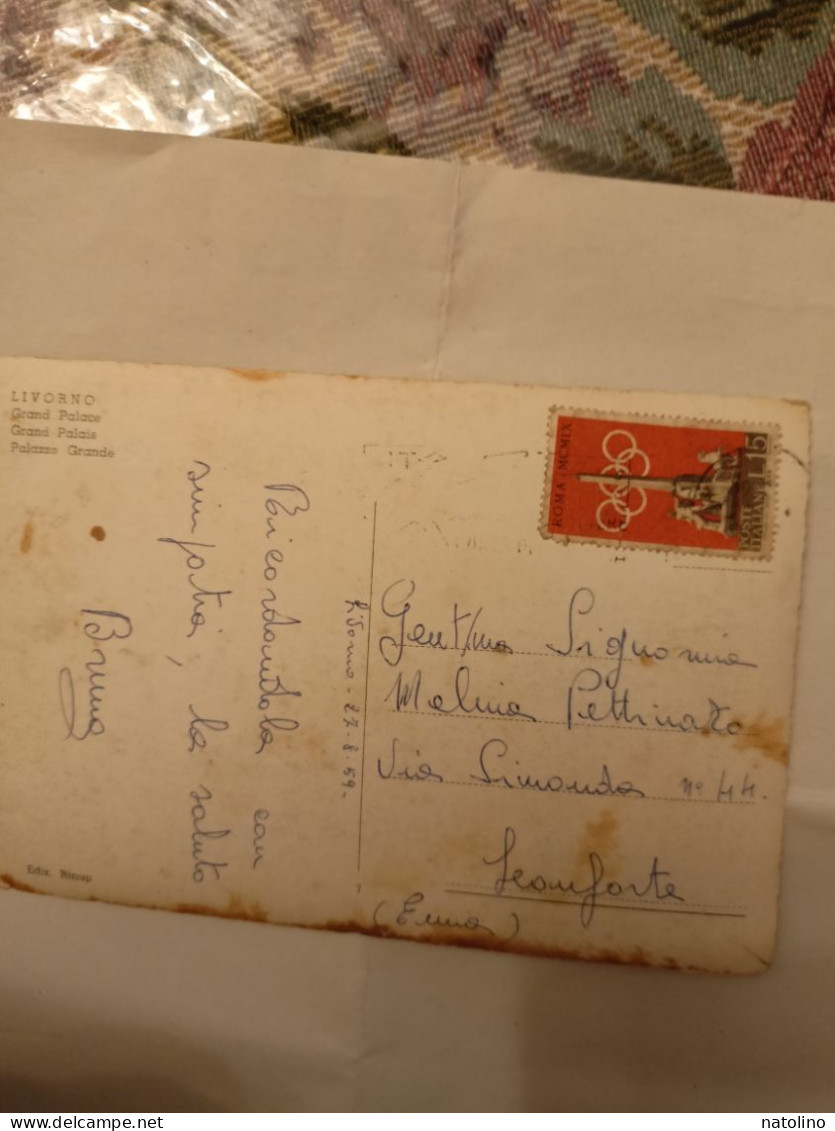 LIVORNO
Grand Palace
Grand Palais
Palazzo Grande
Ricordandola con
simpatia, la saluto
Bruna
Ediz. Rimap
Livorno - 27.8.59-
ROMA · MCMLIX
L. 15
POSTE
ITALIANE
Gent/ma Signorina
Melina Pettinato
Via Simonda n° 44.
Leonforte
(Enna)
natolino